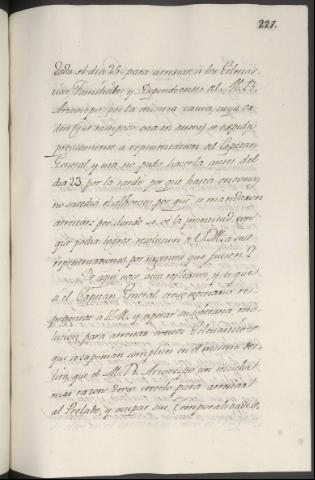 227.
dada el dia 25. para arrestar à los Eclesias
ticos, Familiares, y Dependientes del M. R.
Arzobispo por la misma causa, cuya or
den que tampoco era en autos se expidio
precisamente a representacion del Capitan
General, y esta no pudo hacerla antes del
dia 23 por la tarde, por que hasta entonces
no sucedió el alboroto, por que se mandaron
arrestar: por donde se ve la
que podia lograr resolucion de S. M. a sus
representaciones por urgentes que fuesen?
De aqui nace otra reflexion, y es que
si el Capitan General creyó necesario re
presentar a S. M. y esperar su soberana reso
lucion para arrestar ciertos Eclesiasticos
que se suponian complices en el mismo de
lito, que el M. R. Arzobispo con mucha
mas razon devio creerlo para arrestar
al Prelado, y ocupar sus Temporalidades,